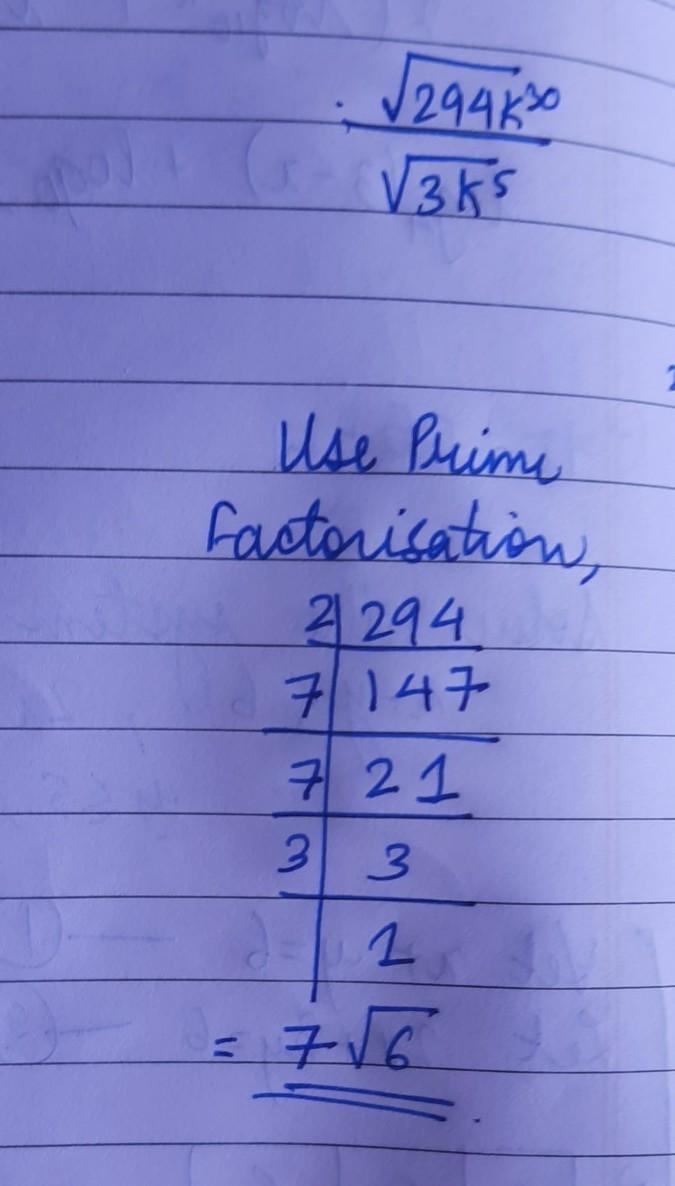 √294k³⁰
√3k⁵
Use Prime
Factorisation,
2 294
7 147
7 21
3 3
1
= 7√6